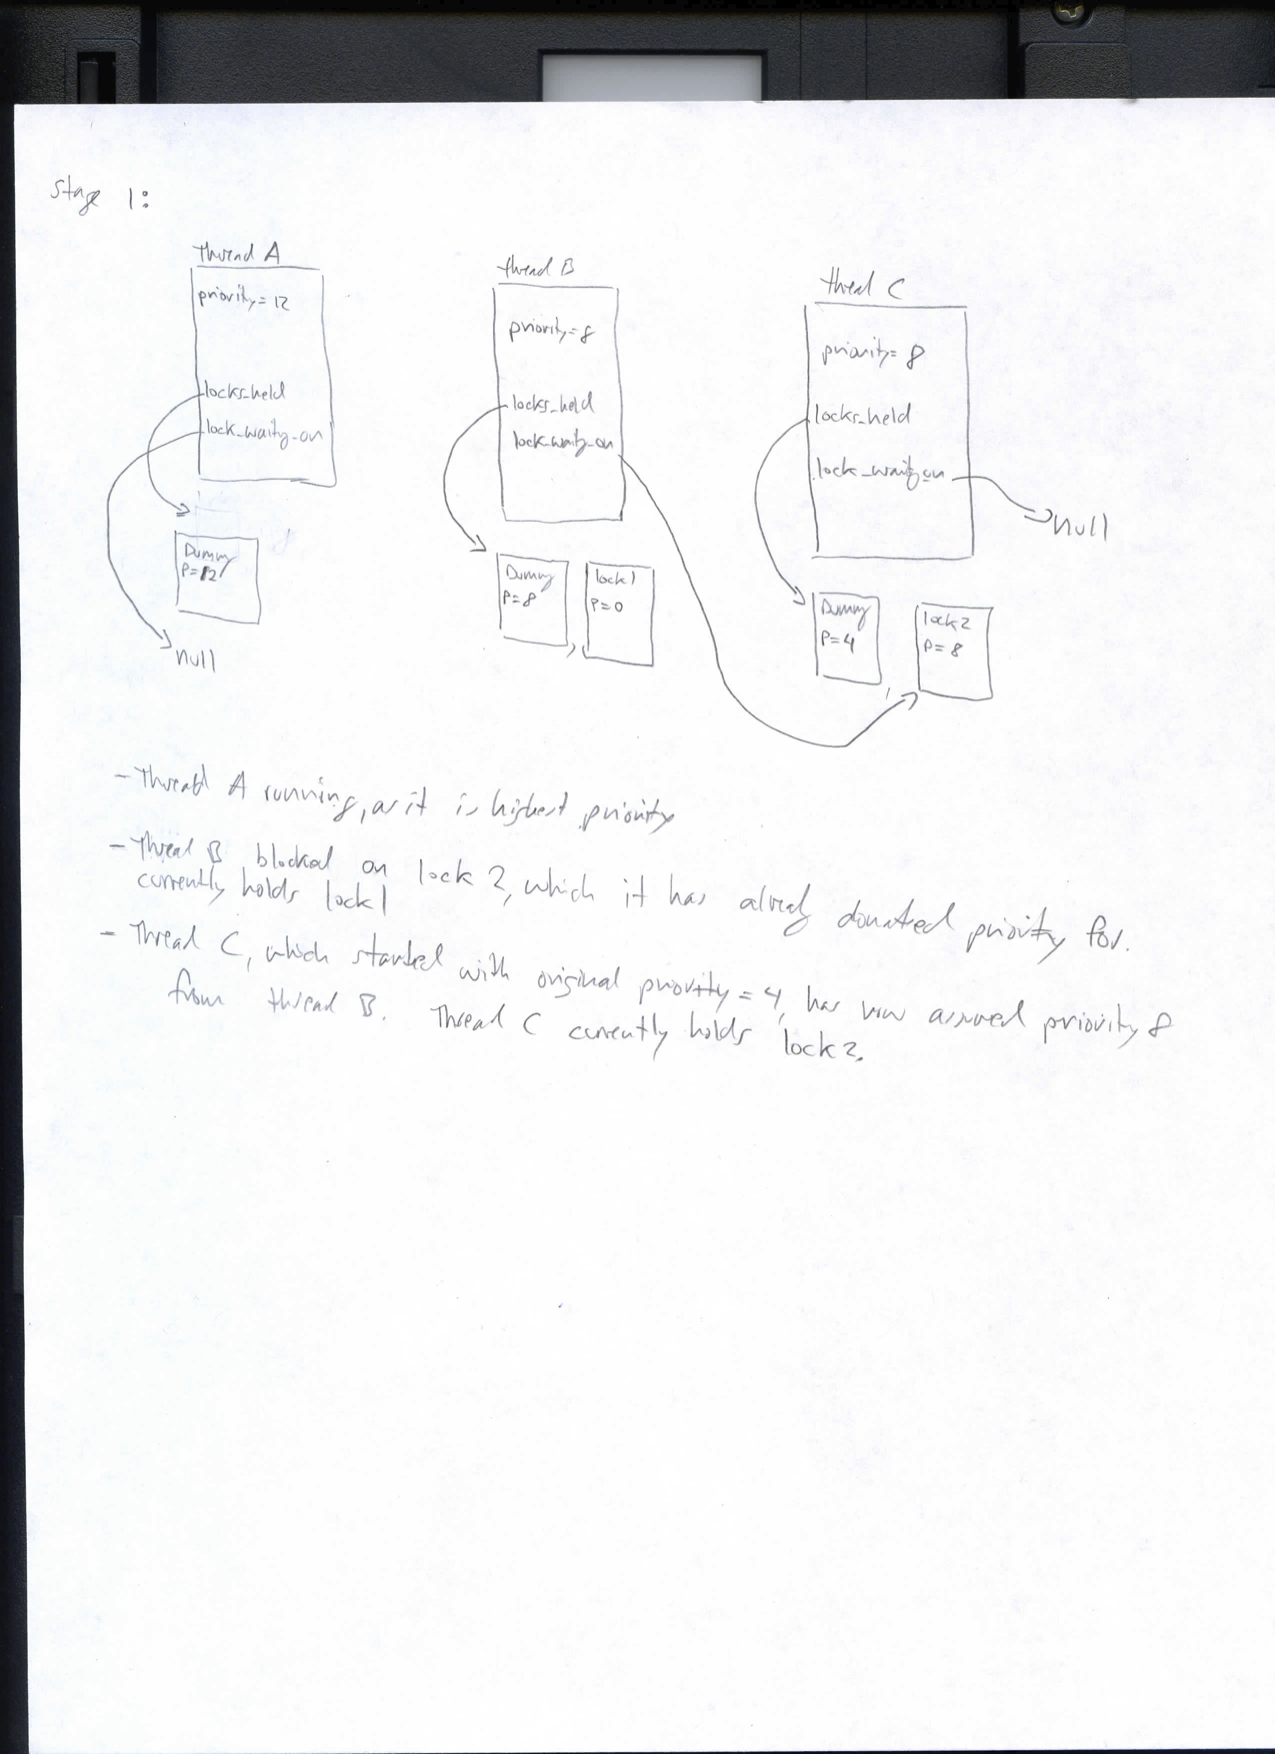 Stage 1:
thread A
thread B
thread C
priority= 12
locks_held
lock_waitg_on
Dummy
P=12
null
priority= 8
locks_held
lock_waitg_on
Dummy
P=8
lock1
P=0
priority= 8
locks_held
lock_waitg_on
null
Dummy
P=4
lock2
P=8
- Thread A running, as it is highest priority
- Thread B blocked on lock 2, which it has already donated priority for.
currently holds lock1
- Thread C, which started with original priority = 4, has now assumed priority 8
from thread B. Thread C currently holds lock2.